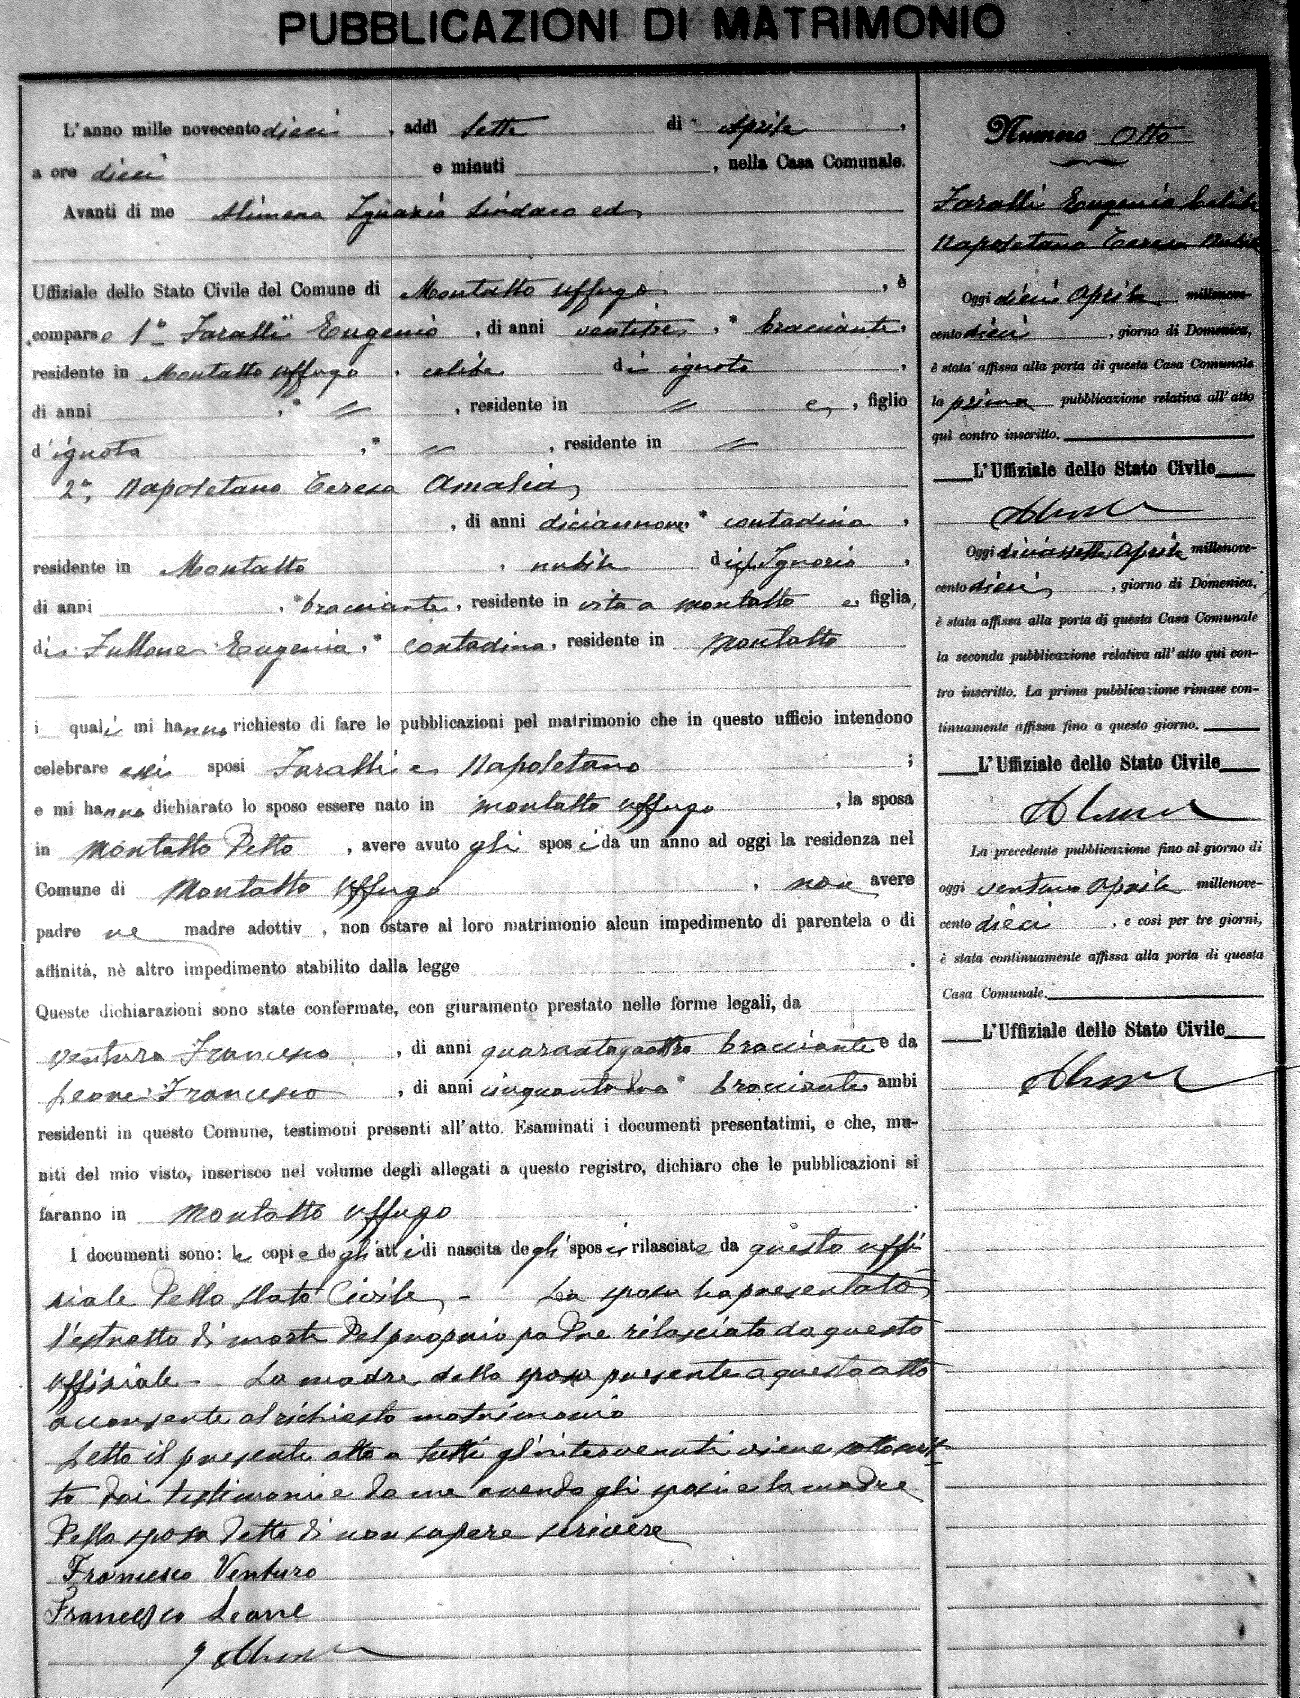 PUBBLICAZIONI DI MATRIMONIO
L'anno mille novecento dieci , addì Sette di Aprile ,
a ore dieci e minuti , nella Casa Comunale.
Avanti di me Alimena Ignazio Sindaco ed
Uffiziale dello Stato Civile del Comune di Montalto Uffugo , è
compars o 1° Faralli Eugenio , di anni ventitre , * bracciante ,
residente in Montalto Uffugo , celibe di ignoto ,
di anni , * " , residente in " e , figlio
d' ignota , * " , residente in "
2° Napoletano Teresa Amalia,
, di anni diciannove * contadina ,
residente in Montalto , nubile d Ignazio ,
di anni , * bracciante , residente in vita a Montalto e , figlia,
di Fullone Eugenia , * contadina , residente in Montalto
i quali mi hanno richiesto di fare le pubblicazioni pel matrimonio che in questo ufficio intendono
celebrare essi sposi Faralli e Napoletano ;
e mi hanno dichiarato lo sposo essere nato in Montalto Uffugo , la sposa
in Montalto Detto , avere avuto gli spos i da un anno ad oggi la residenza nel
Comune di Montalto Uffugo , non avere
padre ne madre adottiv , non ostare al loro matrimonio alcun impedimento di parentela o di
affinità, nè altro impedimento stabilito dalla legge .
Queste dichiarazioni sono state confermate, con giuramento prestato nelle forme legali, da
Ventura Francesco , di anni quarantaquattro bracciante e da
Leone Francesco , di anni cinquantadue * bracciante ambi
residenti in questo Comune, testimoni presenti all'atto. Esaminati i documenti presentatimi, e che, mu-
niti del mio visto, inserisco nel volume degli allegati a questo registro, dichiaro che le pubblicazioni si
faranno in Montalto Uffugo .
I documenti sono: le copie degli atti di nascita degli sposi rilasciate da questo uffi
ziale dello Stato Civile, - La sposa ha presentato
l'estratto di morte del proprio padre rilasciato da questo
uffiziale - La madre della sposa presente a questo atto
acconsente al richiesto matrimonio
Letto il presente atto a tutti gl'intervenuti viene sottoscrit
to dai testimoni e da me avendo gli sposi e la madre
della sposa detto di non sapere scrivere
Francesco Venturo
Francesco Leone
Numero Otto
Faralli Eugenio Celibe
Napoletano Teresa Nubile
Oggi dieci Aprile millenove-
cento dieci , giorno di Domenica,
è stata affissa alla porta di questa Casa Comunale
la prima pubblicazione relativa all'atto
quì contro inscritto.
L'Uffiziale dello Stato Civile
Oggi diciassette Aprile millenove-
cento dieci , giorno di Domenica,
è stata affissa alla porta di questa Casa Comunale
la seconda pubblicazione relativa all'atto qui con-
tro inscritto. La prima pubblicazione rimase con-
tinuamente affissa fino a questo giorno.
L'Uffiziale dello Stato Civile
La precedente pubblicazione fino al giorno di
oggi ventuno Aprile millenove-
cento dieci , e così per tre giorni,
è stata continuamente affissa alla porta di questa
Casa Comunale.
L'Uffiziale dello Stato Civile